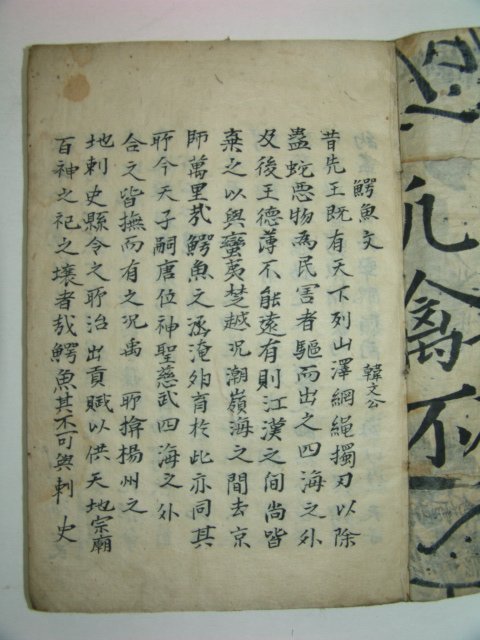 凡禽不
鰐魚文 韓文公
昔先王既有天下列山澤網繩擉刃以除
蟲蛇悪物為民害者驅而出之四海之外
及後王德薄不能遠有則江漢之間尚皆
棄之以與蠻夷楚越况潮嶺海之間去京
師萬里哉鰐魚之淹卵育於此亦同其
所今天子嗣唐位神聖慈武四海之外
合之皆撫而有之况禹所揜揚州之
地刺史縣令之所治出貢賦以供天地宗廟
百神之祀之壤者哉鰐魚其不可與刺史